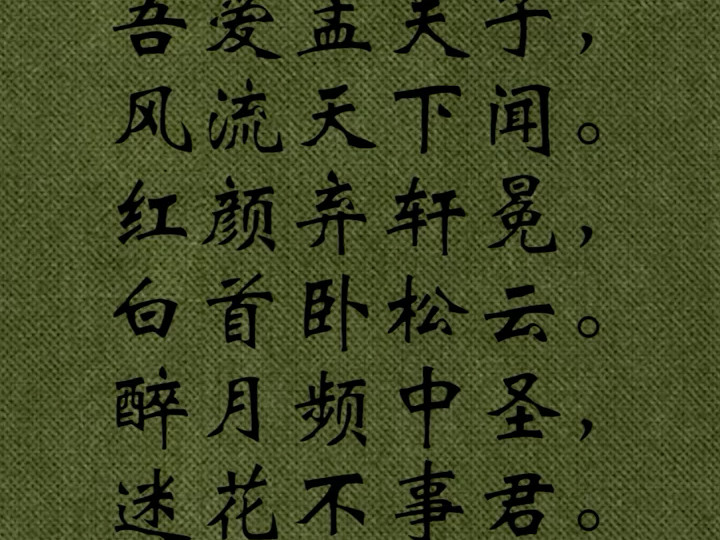 吾爱孟夫子，
风流天下闻。
红颜弃轩冕，
白首卧松云。
醉月频中圣，
迷花不事君。